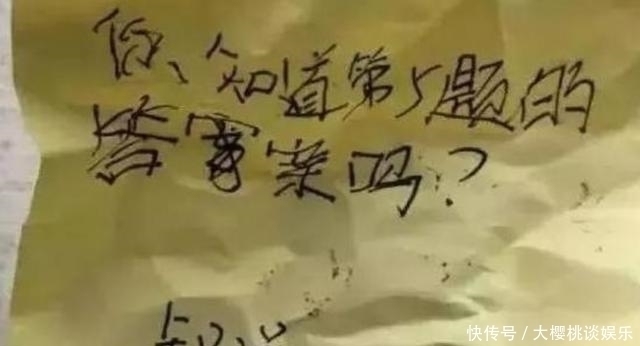 你知道第5题的
答案案吗?
快传号/大樱桃谈娱乐